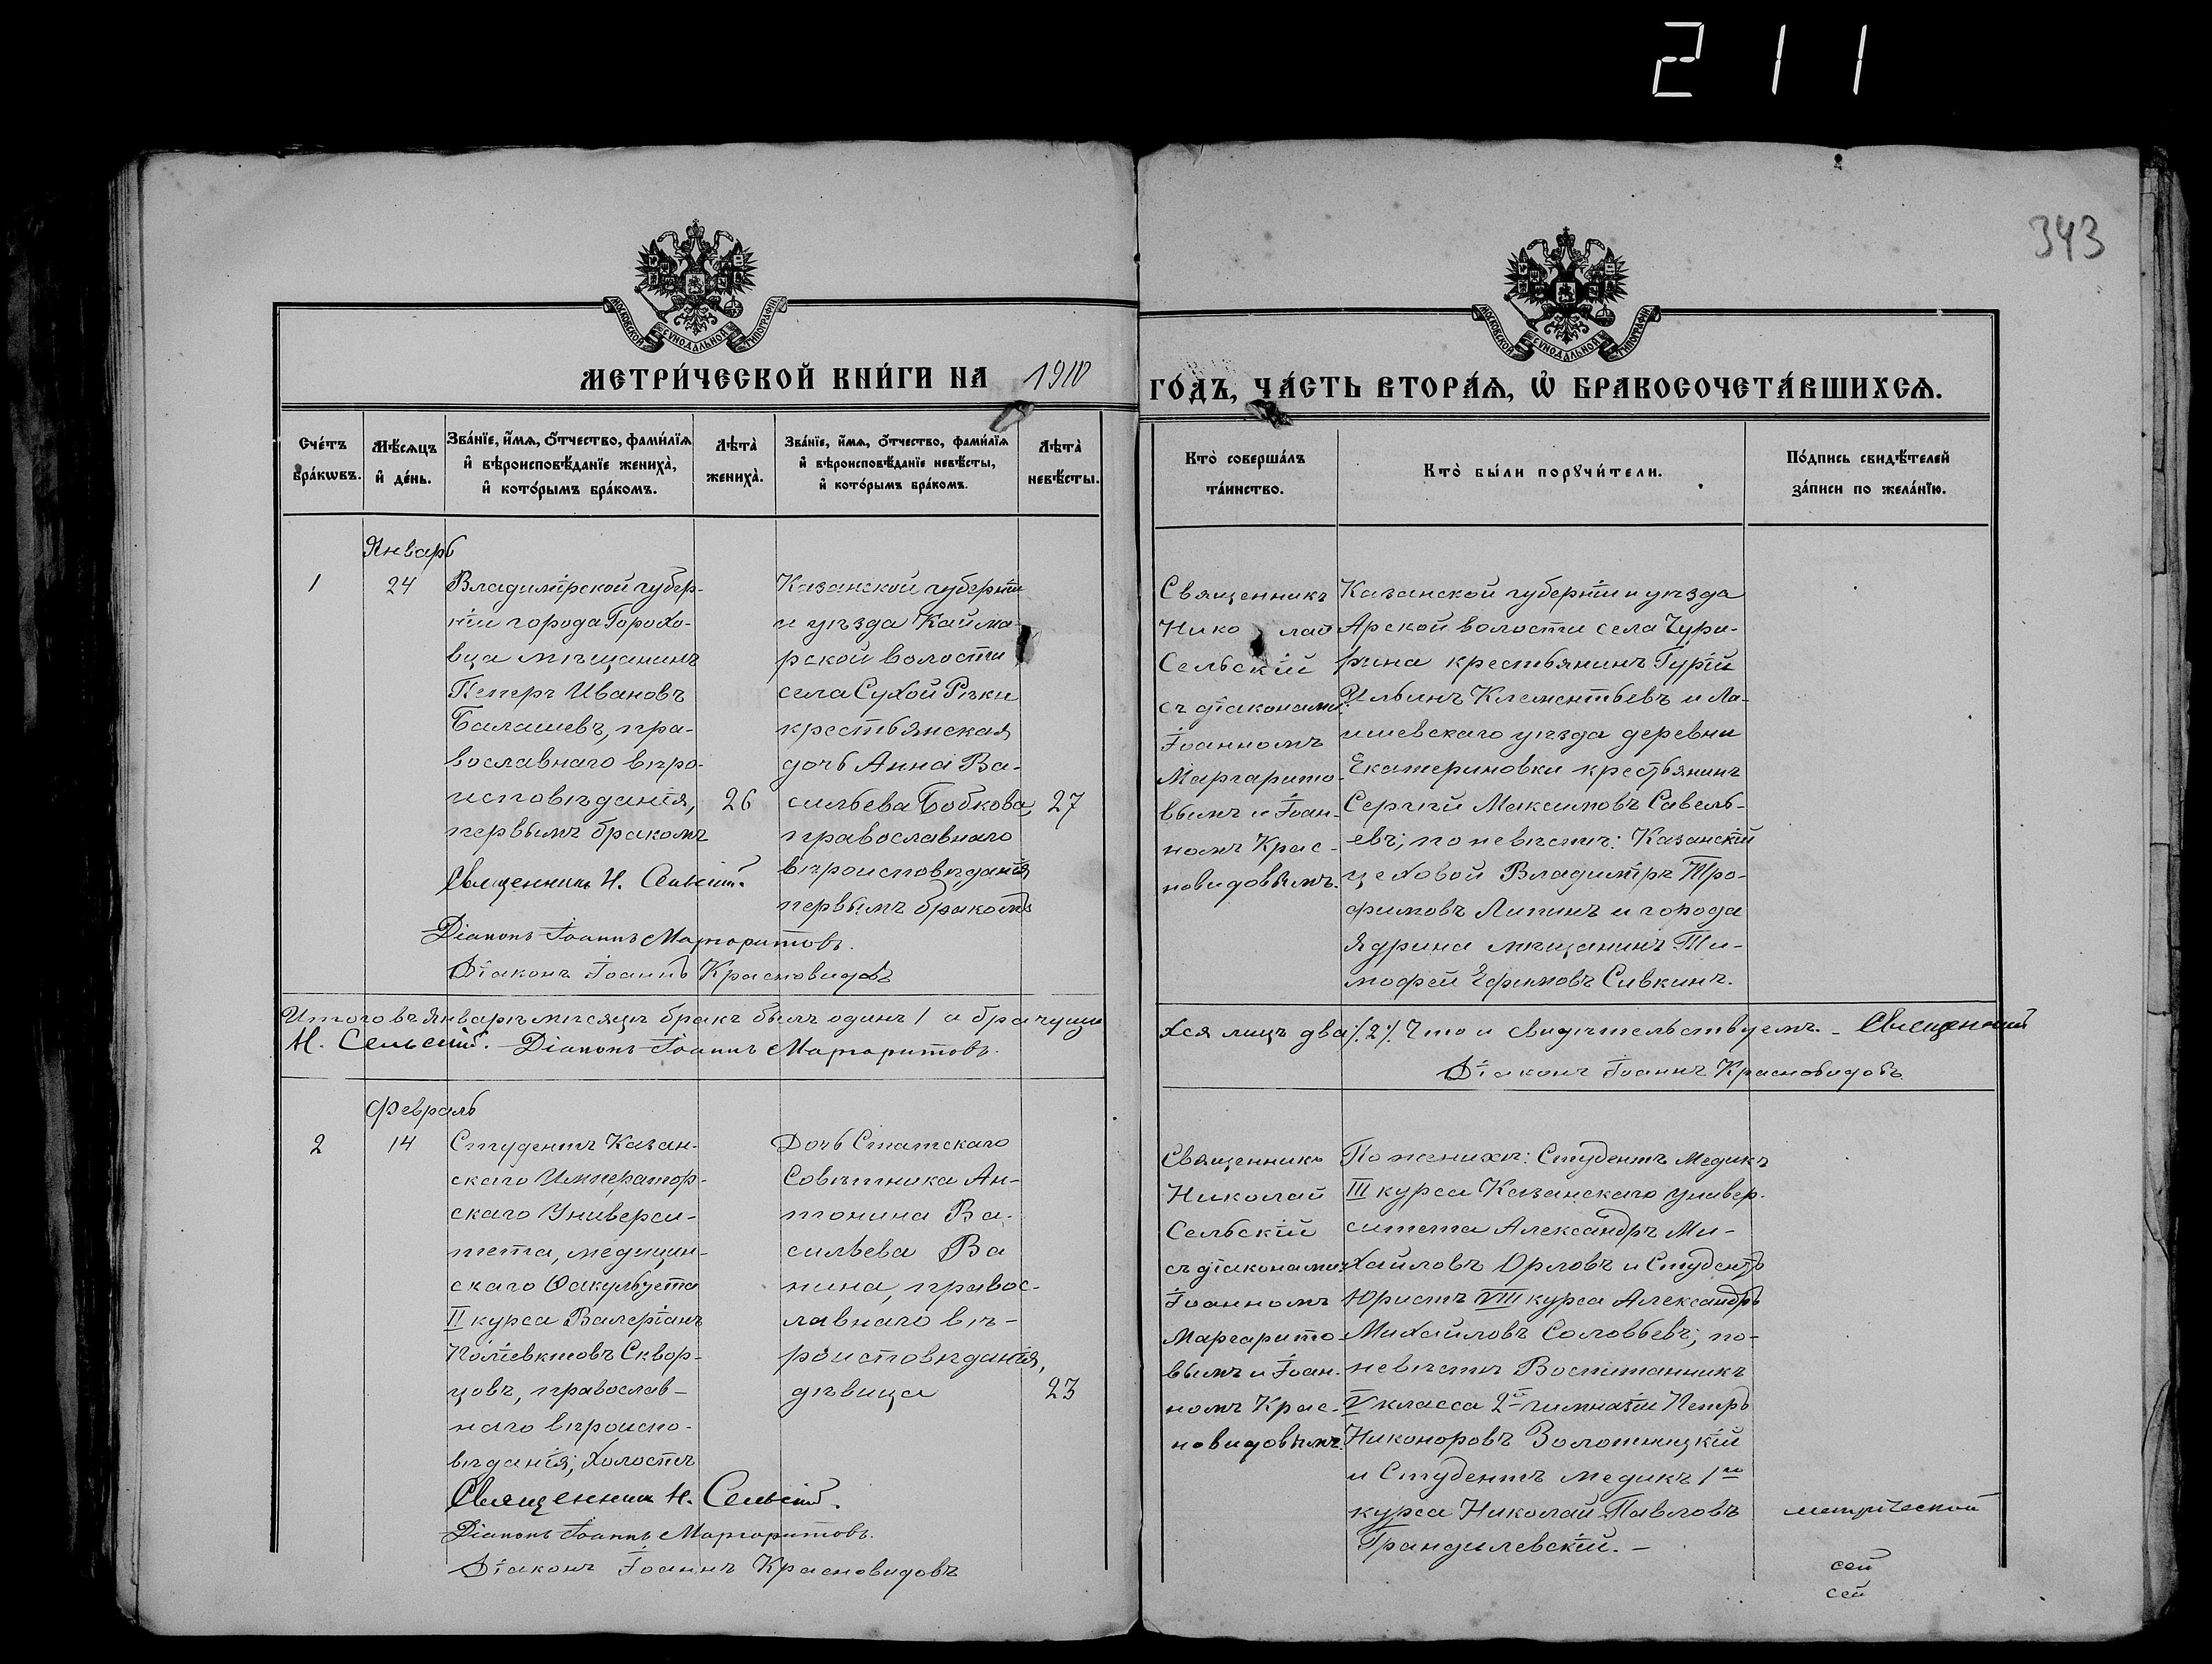 211
343
МОСКОВСКОЙ СѴНОДАЛЬНОЙ ТИПОГРАФІИ
МОСКОВСКОЙ СѴНОДАЛЬНОЙ ТИПОГРАФІИ
МЕТРИ́ЧЕСКОЙ КНИ́ГИ НА 1910
ГО́ДЪ, ЧА́СТЬ ВТОРА́Ѧ, Ѡ҆ БРАКОСОЧЕТА́ВШИХСѦ.
Сче́тъ
бра́кѡвъ.
Мѣ́сѧцъ
и҆ де́нь.
Зва́нїе, и҆́мѧ, ѻ҆́тчество, фами́лїѧ
и҆ вѣроисповѣ́данїе жениха̀,
и҆ кото́рымъ бра́комъ.
Лѣта̀
жениха̀.
Зва́нїе, и҆́мѧ, ѻ҆́тчество, фами́лїѧ
и҆ вѣроисповѣ́данїе невѣ́сты,
и҆ кото́рымъ бра́комъ.
Лѣта̀
невѣ́сты.
Кто̀ соверша́лъ
та́инство.
Кто̀ бы́ли порꙋчи́тели.
По́дпись свидѣ́телей
за́писи по жела́нїю.
Январь
1
24
Владимірской губер-
ніи города Горохо-
вца мѣщанинъ
Петръ Ивановъ
Балашевъ, пра-
вославнаго вѣро-
исповѣданія,
первымъ бракомъ
26
Казанской губерніи
и уѣзда Кайма-
рской волости
села Сухой Рѣки
крестьянская
дочь Анна Ва-
сильева Бобкова,
православнаго
вѣроисповѣданія
первымъ бракомъ
27
Священникъ Н. Сельскій.
Діаконъ Іоаннъ Маргаритовъ.
Діаконъ Іоаннъ Красновидовъ
Священникъ
Николай
Сельскій
съ діаконами:
Іоанномъ
Маргарито-
вымъ и Іоан-
номъ Крас-
новидовымъ.
Казанской губерніи и уѣзда
Арской волости села Чури-
лина крестьянинъ Гурій
Ильинъ Клементьевъ и Ла-
ишевскаго уѣзда деревни
Екатериновки крестьянинъ
Сергѣй Максимовъ Савель-
евъ; по невѣстѣ: Казанскій
цеховой Владиміръ Тро-
фимовъ Липинъ и города
Ядрина мѣщанинъ Ти-
мофей Ефимовъ Сивкинъ.
Итого въ Январѣ мѣсяцѣ бракъ былъ одинъ 1 а брачущи
хся лицъ два ∕.2∕. Что и свидѣтельствуемъ. – Священникъ
Н. Сельскій. – Діаконъ Іоаннъ Маргаритовъ.
Діаконъ Іоаннъ Красновидовъ
Февраль
2
14
Студентъ Казан-
скаго Император-
скаго Универси-
тета, медицин-
скаго Факультета
II курса Валеріанъ
Поліевктовъ Сквор-
цовъ, православ-
наго вѣроиспо-
вѣданія; холостъ
Дочь Статскаго
Совѣтника Ан-
тонина Ва-
сильева Ва
нина, правос-
лавнаго вѣ-
роисповѣданія,
дѣвица
23
Священникъ Н. Сельскій.
Діаконъ Іоаннъ Маргаритовъ.
Діаконъ Іоаннъ Красновидовъ
Священникъ
Николай
Сельскій
съ діаконами:
Іоанномъ
Маргарито-
вымъ и Іоан-
номъ Крас-
новидовымъ.
По женихѣ: Студентъ Медикъ
III курса Казанскаго универ-
ситета Александръ Ми-
хайловъ Орловъ и Студентъ
Юристъ VIII курса Александръ
Михайловъ Соловьевъ; по-
невѣстѣ Воспитанникъ
V класса 2й гимназіи Петръ
Никоноровъ Золотницкій
и Студентъ медикъ 1го
курса Николай Павловъ
Грандилевскій. –
метрической
сей
сей